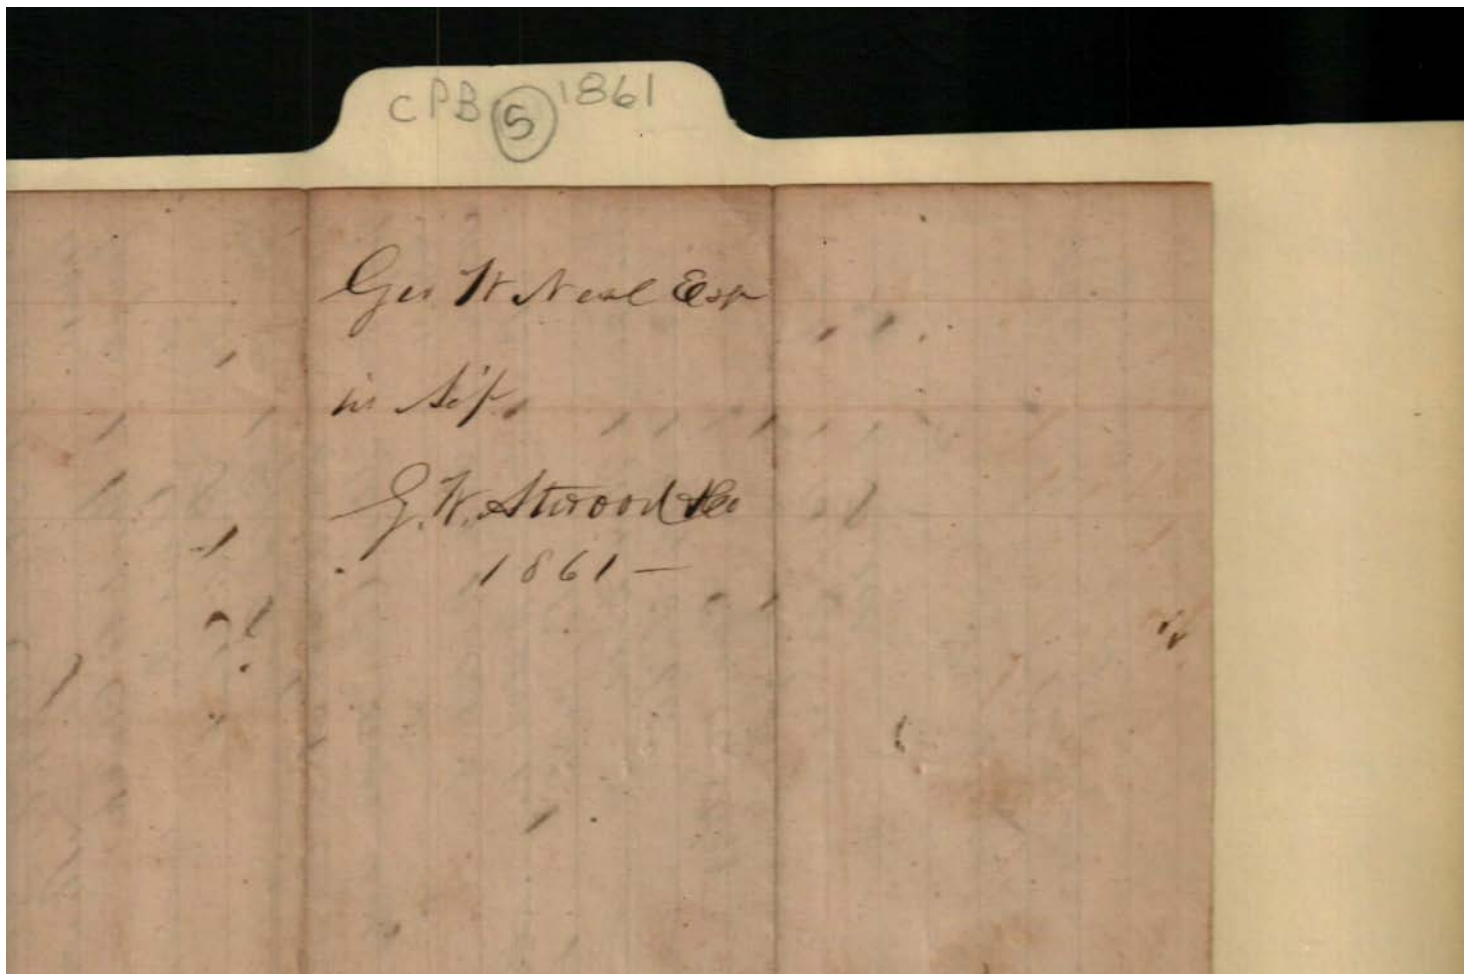 CPB 5 1861
Geo W Neal Esq
in
G. W. Atwood & Co
1861 —